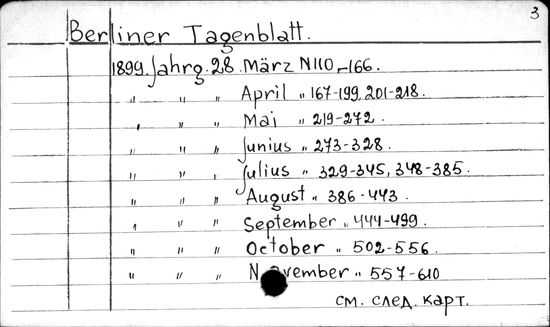 3
Berliner Tagenblatt.
1899. Jahrg. 28. März N110-166.
" " " April " 167-199, 201-218.
" " " Mai " 219-272.
" " " Junius " 273-328.
" " " Julius " 329-345, 348-385.
" " " August " 386-443.
" " " September " 444-499.
" " " October " 502-556.
" " " November " 557-610
см. след. карт.